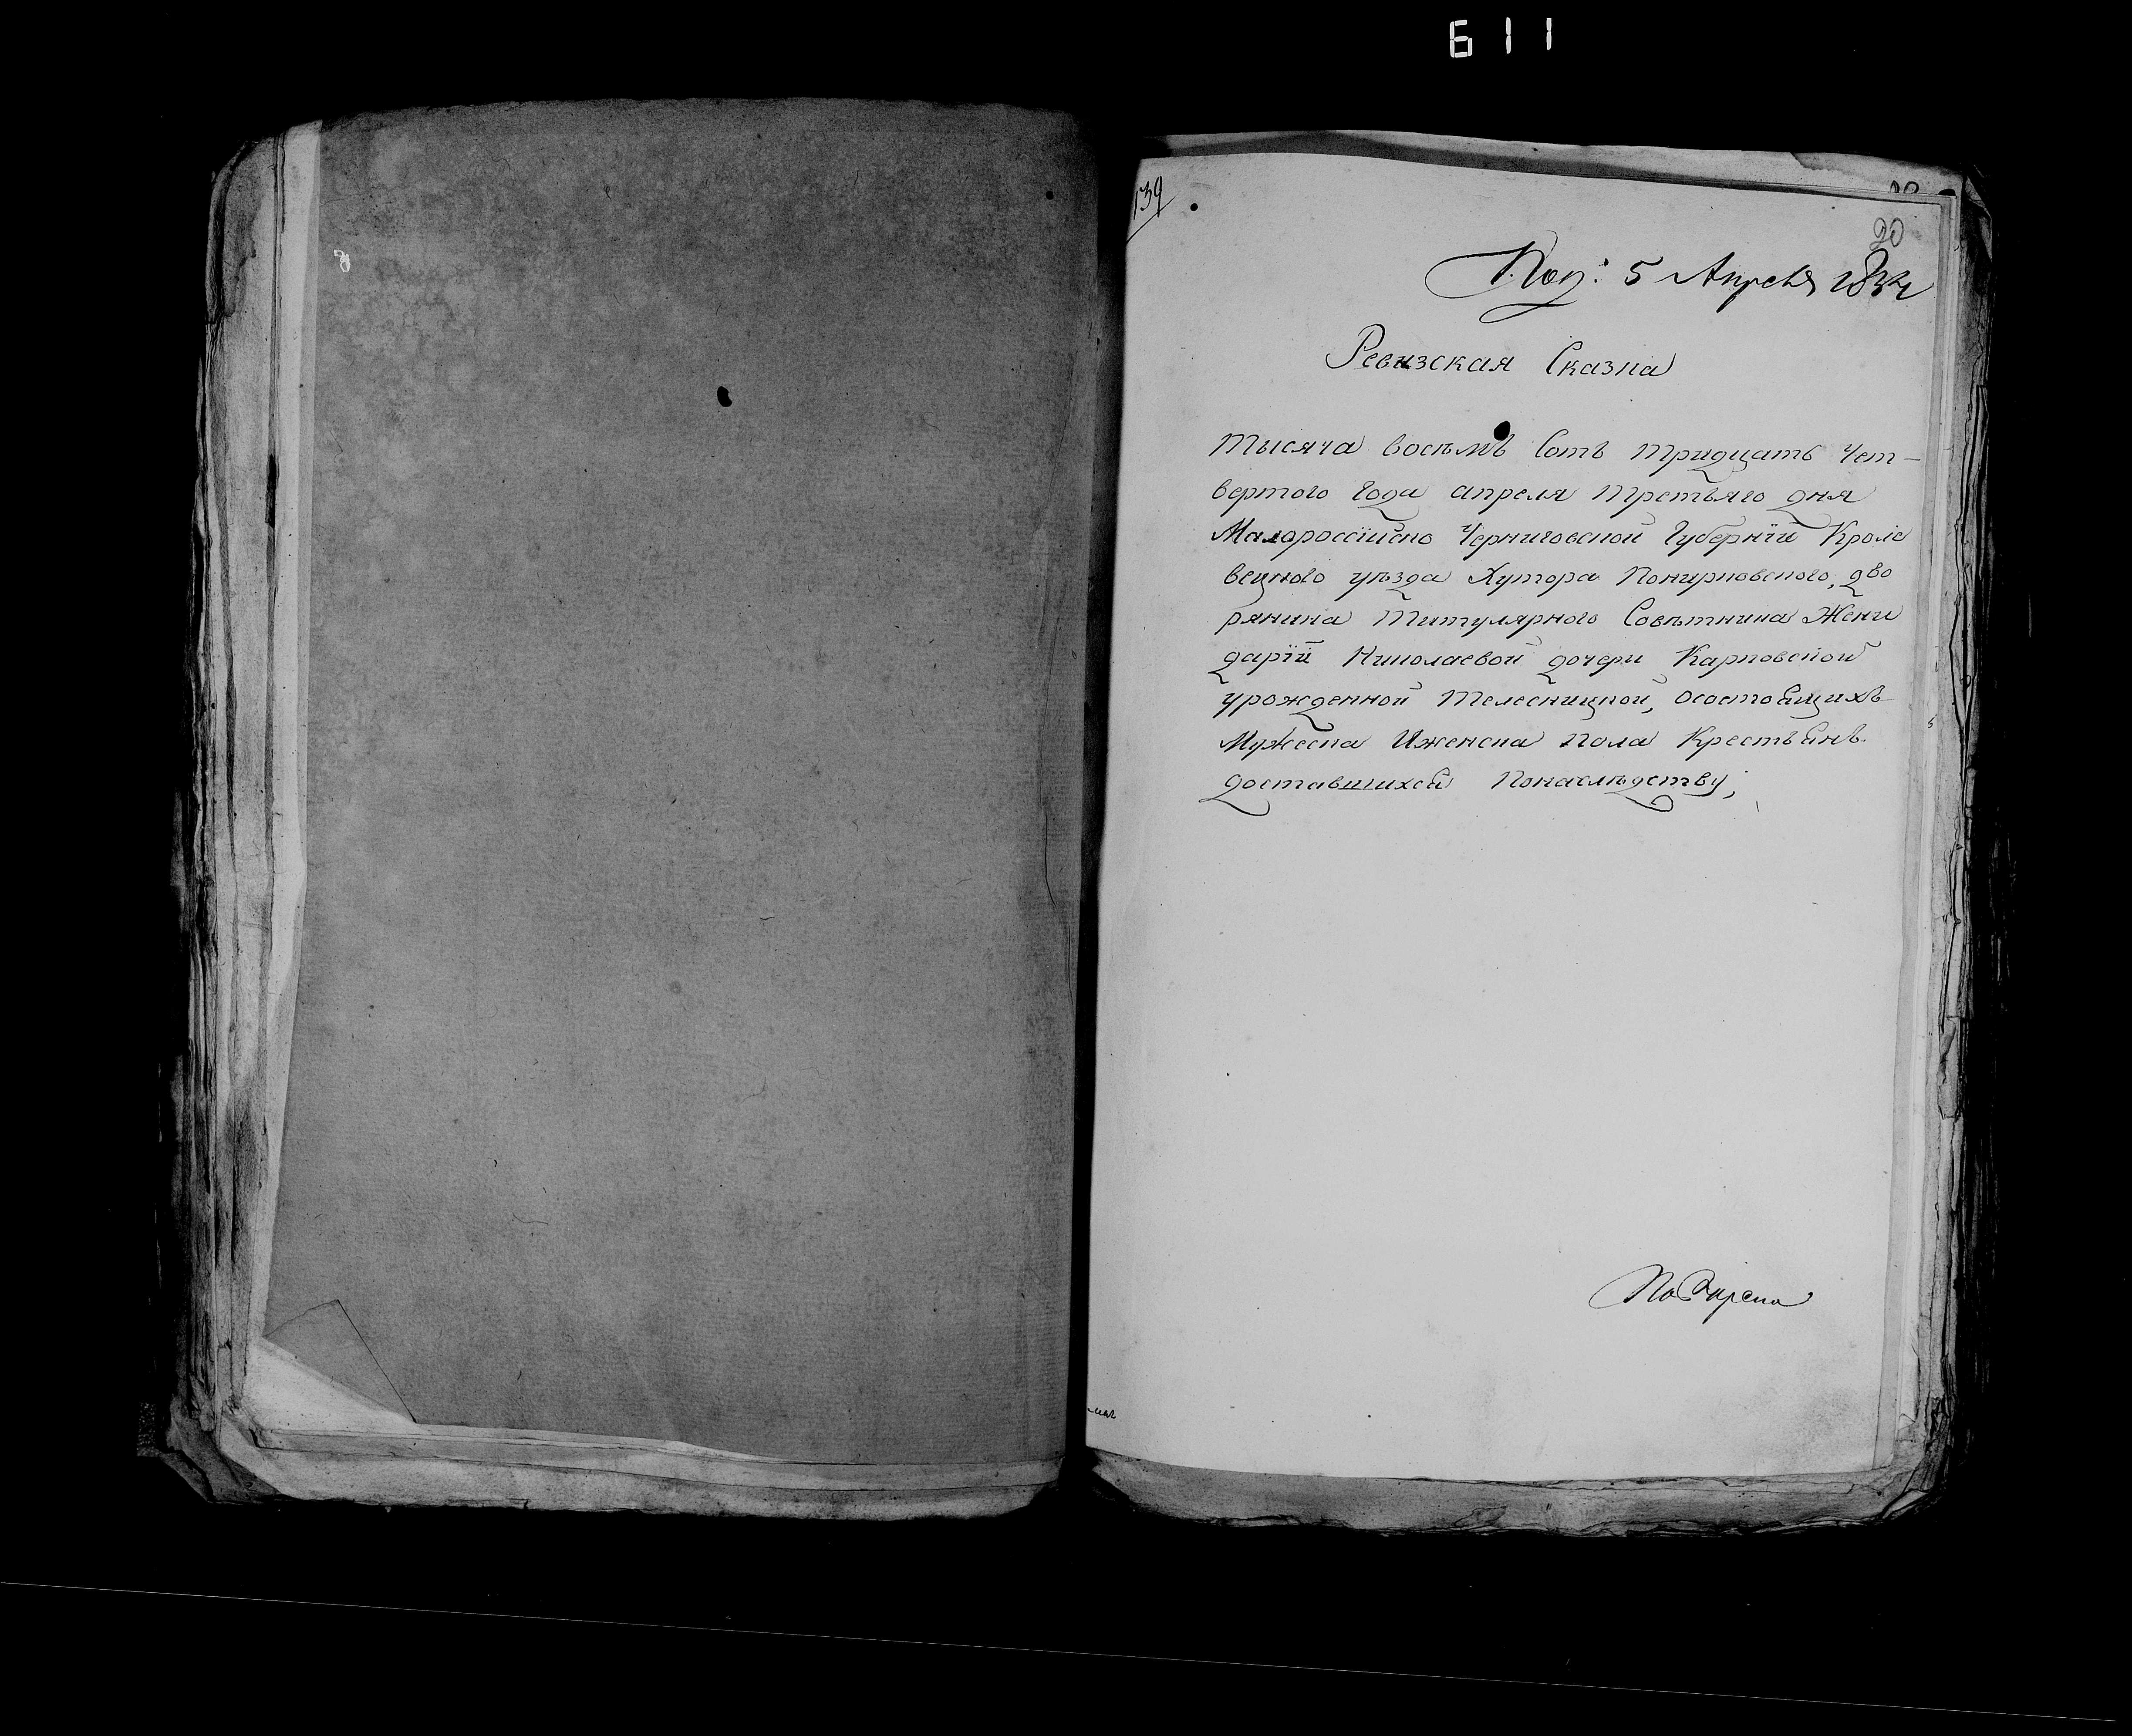 611
139
20
Под: 5 Апреля 1834
Ревизская Сказка
Тысяча восѣмъ Сотъ тридцать Чет-
вертого Года апреля третьяго дня
Малороссійско Черниговской Губерніи Кроле
вецкого уѣзда Хутора дво
рянина Титулярного Совѣтника Жени
дарій Николаевой дочери Карповской
урожденной Телесницкой, осостоящихъ
Мужеска Иженска пола Крестьянъ
доставшихся Понаслѣдству;